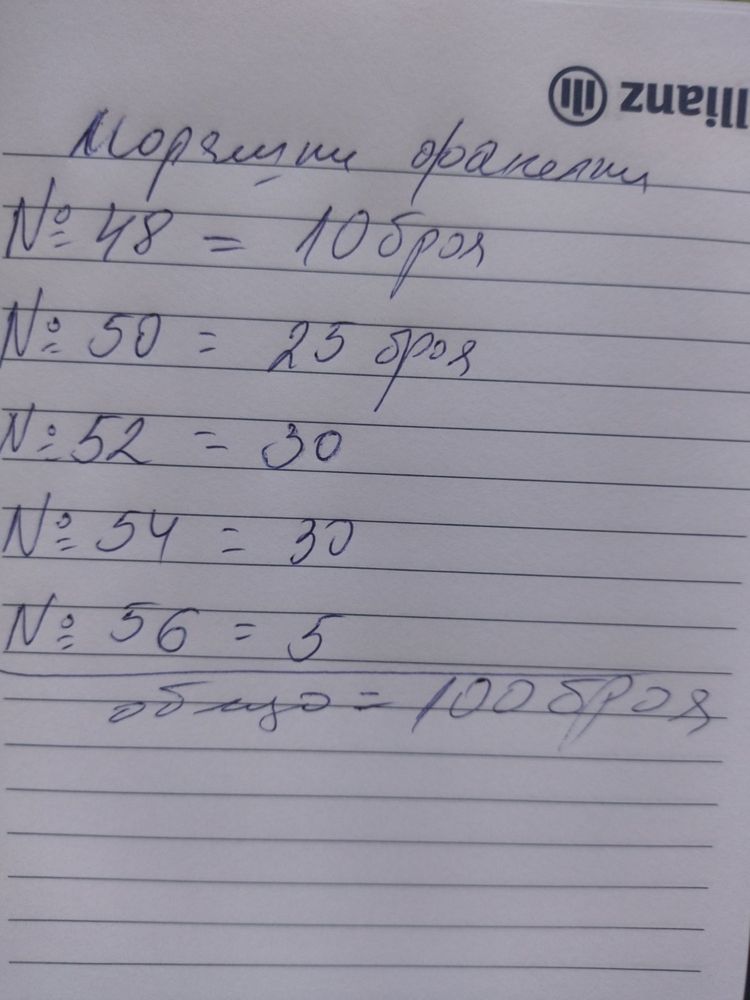 llianz
Моряшки фанелки
№ 48 = 10 броя
№ 50 = 25 броя
№ 52 = 30
№ 54 = 30
№ 56 = 5
общо = 100 броя